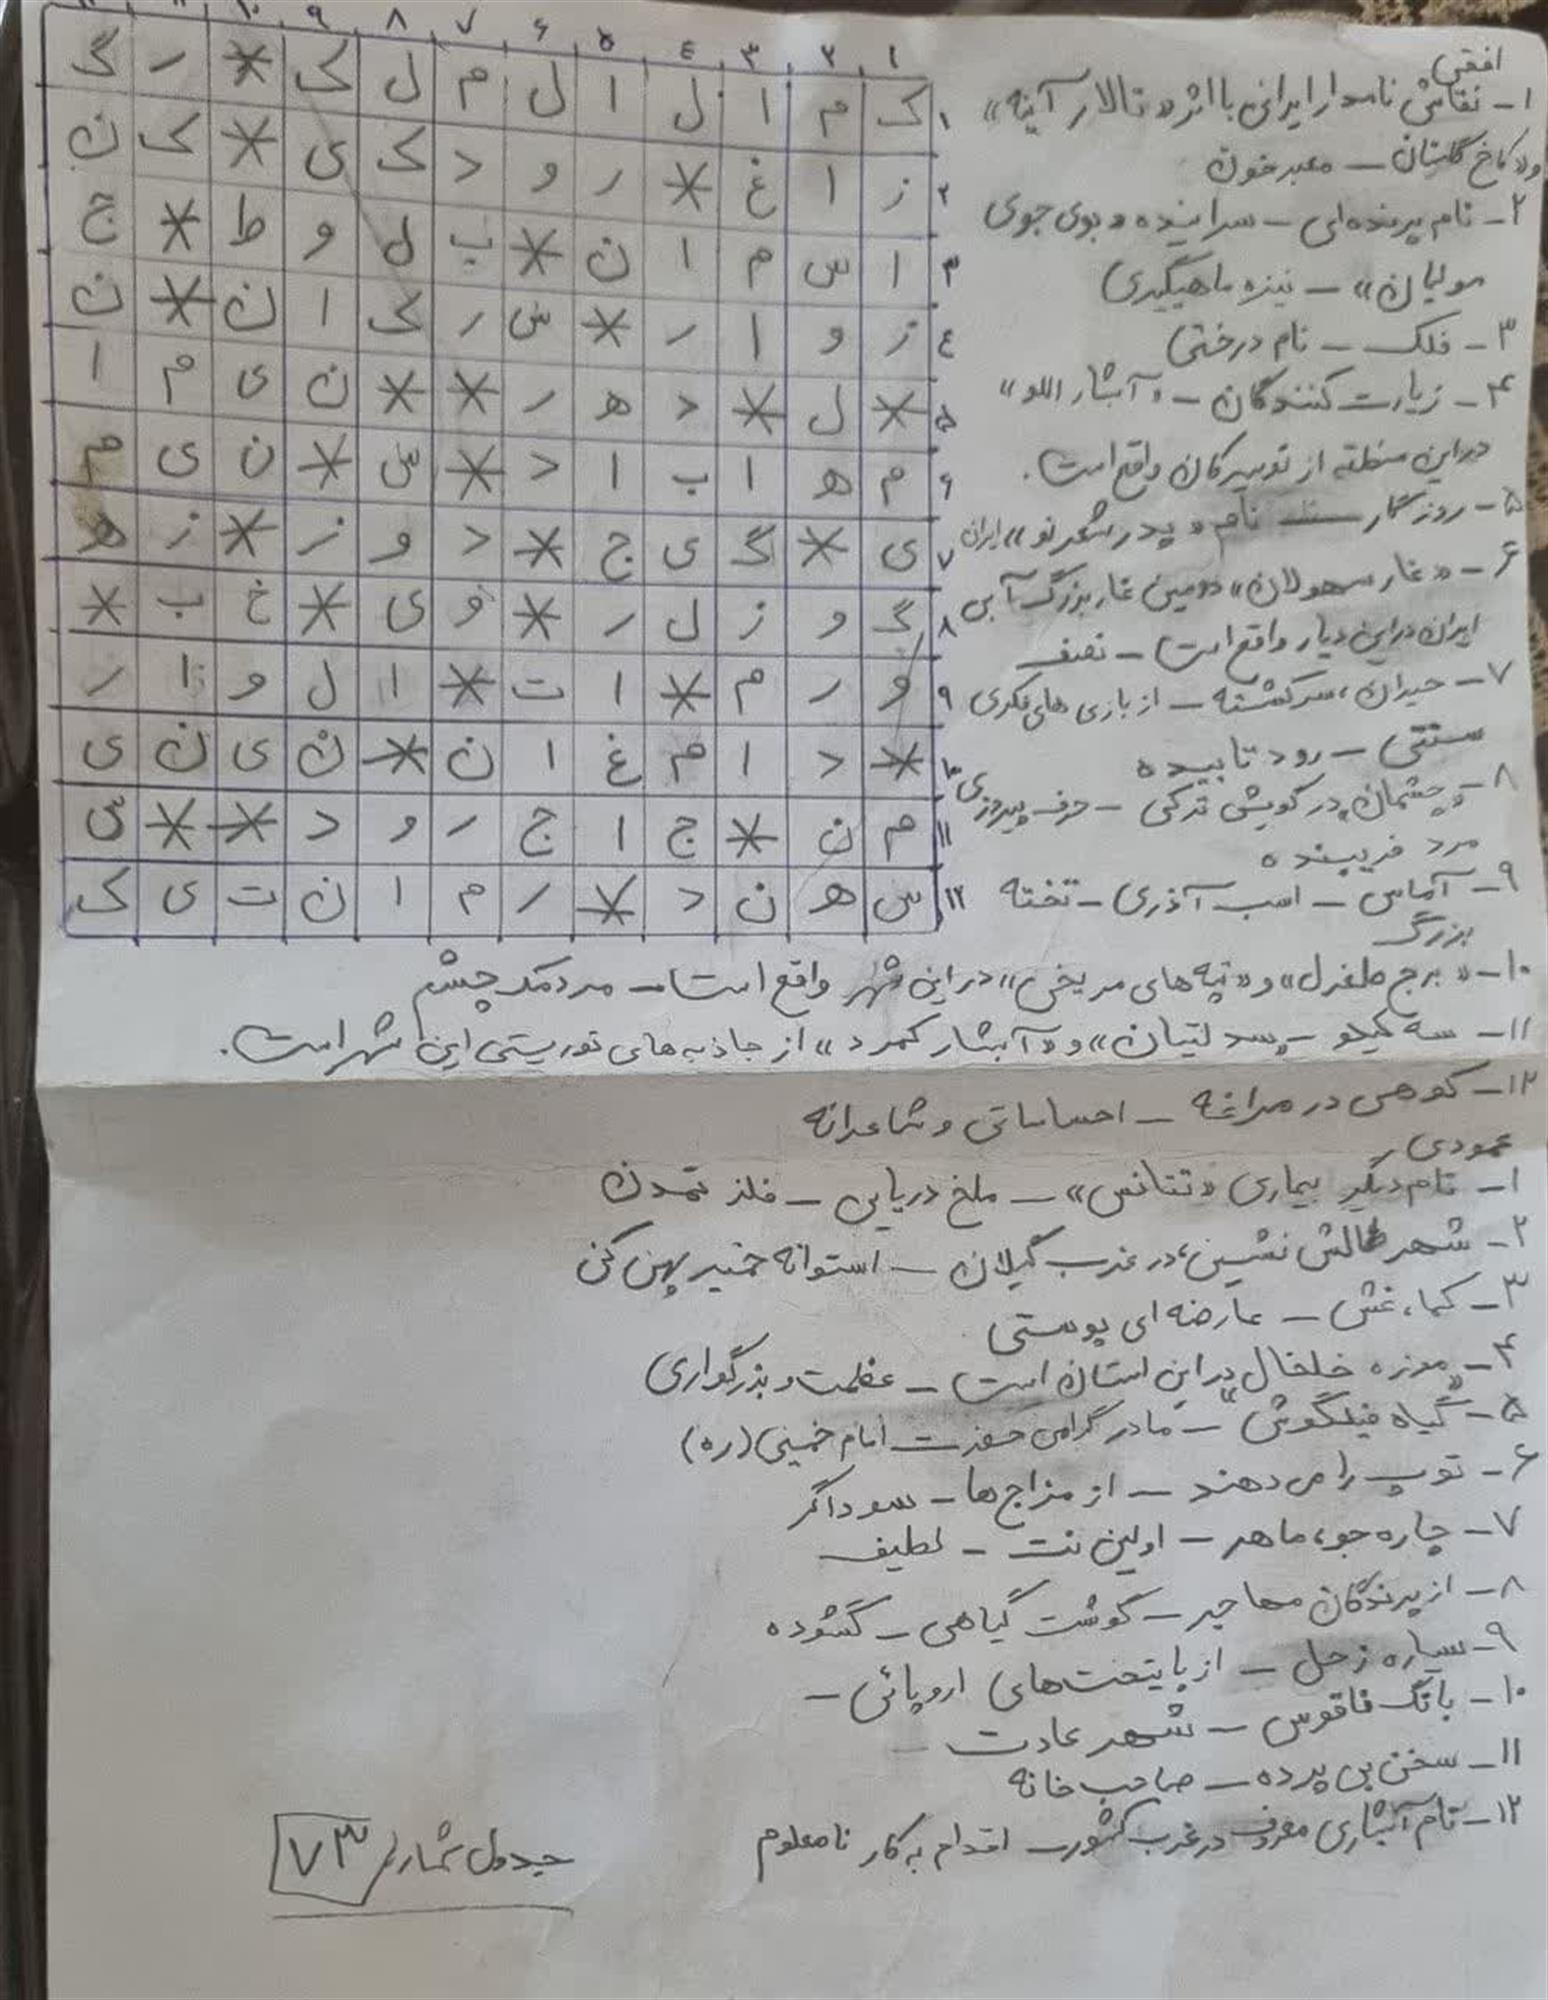 ۱۲ ۱۱ ۱۰ ۹ ۸ ۷ ۶ ۵ ٤ ۳ ۲ ۱
۱ ک م ا ل ا ل م ل ک * ر گ
۲ ز ا غ * ر و د ک ی * ک ن
۳ ا س م ا ن * ب ل و ط * ج
٤ ز و ا ر * س ر ک ا ن * ن
۵ * ل * د ه ر * * ن ی م ا
۶ م ه ا ب ا د * س * ن ی م
۷ ی * گ ی ج * د و ز * ز ه
۸ گ و ز ل ر * و ی * خ ب *
۹ و ر م * ا ت * ا ل و ا ر
۱۰ * د ا م غ ا ن * ن ی ن ی
۱۱ م ن * ج ا ج ر و د * * س
۱۲ س ه ن د * ر م ا ن ت ی ک
افقی
۱- نقاش نامدار ایرانی با اثر «تالار آینه»
و «کاخ گلستان – معبر خون
۲- نام پرنده‌ای – سراینده «بوی جوی
مولیان» – نیزه ماهیگیری
۳- فلک – نام درختی
۴- زیارت کنندگان – «آبشار اللو»
در این منطقه از تویسرکان واقع است.
۵- روزگار – نام «پدر شعر نو» ایران
۶- «غار سهولان» دومین غار بزرگ آبی
ایران در این دیار واقع است – نصف
۷- حیران، سرگشته – از بازی های فکری
سنتی – رود تابیده
۸- چشمان در گویش ترکی – حرف پیروزی
مرد فریبنده
۹- آماس – اسب آذری – تخته
بزرگ
۱۰- «برج طغرل» و «تپه های مریخی» در این شهر واقع است – مردمک چشم
۱۱- سه کیلو – سد لتیان» و «آبشار کمرد» از جاذبه های توریستی این شهر است.
۱۲- کوهی در مراغه – احساساتی و شاعرانه
عمودی
۱- نام دیگر بیماری «تتانس» – ملخ دریایی – فلز تمدن
۲- شهر طالش نشین، در غرب گیلان – استوانه خمیر پهن کنی
۳- کما، غش – عارضه ای پوستی
۴- «موزه خلخال» در این استان است – عظمت و بزرگواری
۵- «گیاه فیلگوش» – مادر گرامی حضرت امام خمینی (ره)
۶- توپ را می دهند – از مزاج ها – سوداگر
۷- چاره جو، ماهر – اولین نت – لطیف
۸- از پرندگان مهاجر – گوشت گیاهی – گشوده
۹- سیاره زحل – از پایتخت های اروپائی –
۱۰- بانگ ناقوس – شهر عادت –
۱۱- سخن بی پرده – صاحب خانه
۱۲- نام آبشاری معروف در غرب کشور – اقدام به کار نامعلوم
جدول شماره ۷۳